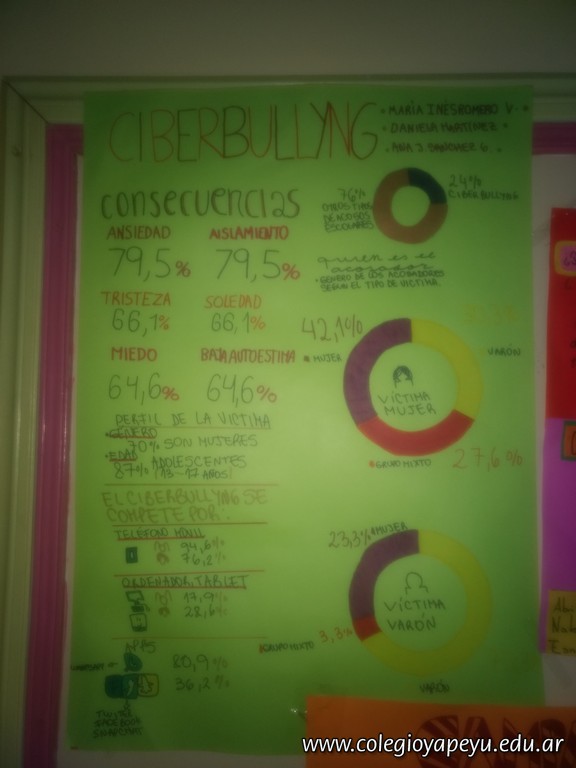 CIBERBULLYNG
• MARÍA INES ROMERO V •
• DANIELA MARTINEZ •
• ANA J. SANCHEZ G. •
consecuencias
ANSIEDAD AISLAMIENTO
79,5% 79,5%
TRISTEZA SOLEDAD
66,1% 66,1%
MIEDO BAJA AUTOESTIMA
64,6% 64,6%
PERFIL DE LA VICTIMA
• GÉNERO
70% SON MUJERES
• EDAD ADOLESCENTES
87% (13-17 AÑOS)
EL CIBERBULLYNG SE
COMPETE POR.
TELÉFONO MÓVIL
94,6%
76,2%
ORDENADOR, TABLET
17,9%
28,6%
APPS
WHATSAPP
80,9%
36,2%
FACEBOOK
SNAPCHAT
76%
OTROS TIPOS
DE ACOSOS
ESCOLARES
24%
CIBERBULLYNG
quien es el
acosador
• GÉNERO DE LOS ACOSADORES
SEGÚN EL TIPO DE VICTIMA.
42,1%
MUJER
VARÓN
VÍCTIMA
MUJER
GRUPO MIXTO 27,6%
23,3% MUJER
VÍCTIMA
VARÓN
3,3%
GRUPO MIXTO
VARÓN
www.colegioyapeyu.edu.ar